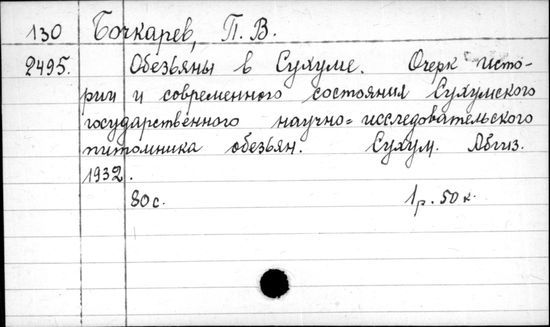 130 Бочкарев, П. В.
2495. Обезьяны в Сухуме. Очерк исто-
рии и современного состояния Сухумского
государственного научно-исследовательского
питомника обезьян. Сухум. Абгиз.
1932.
80с. 1р. 50к.